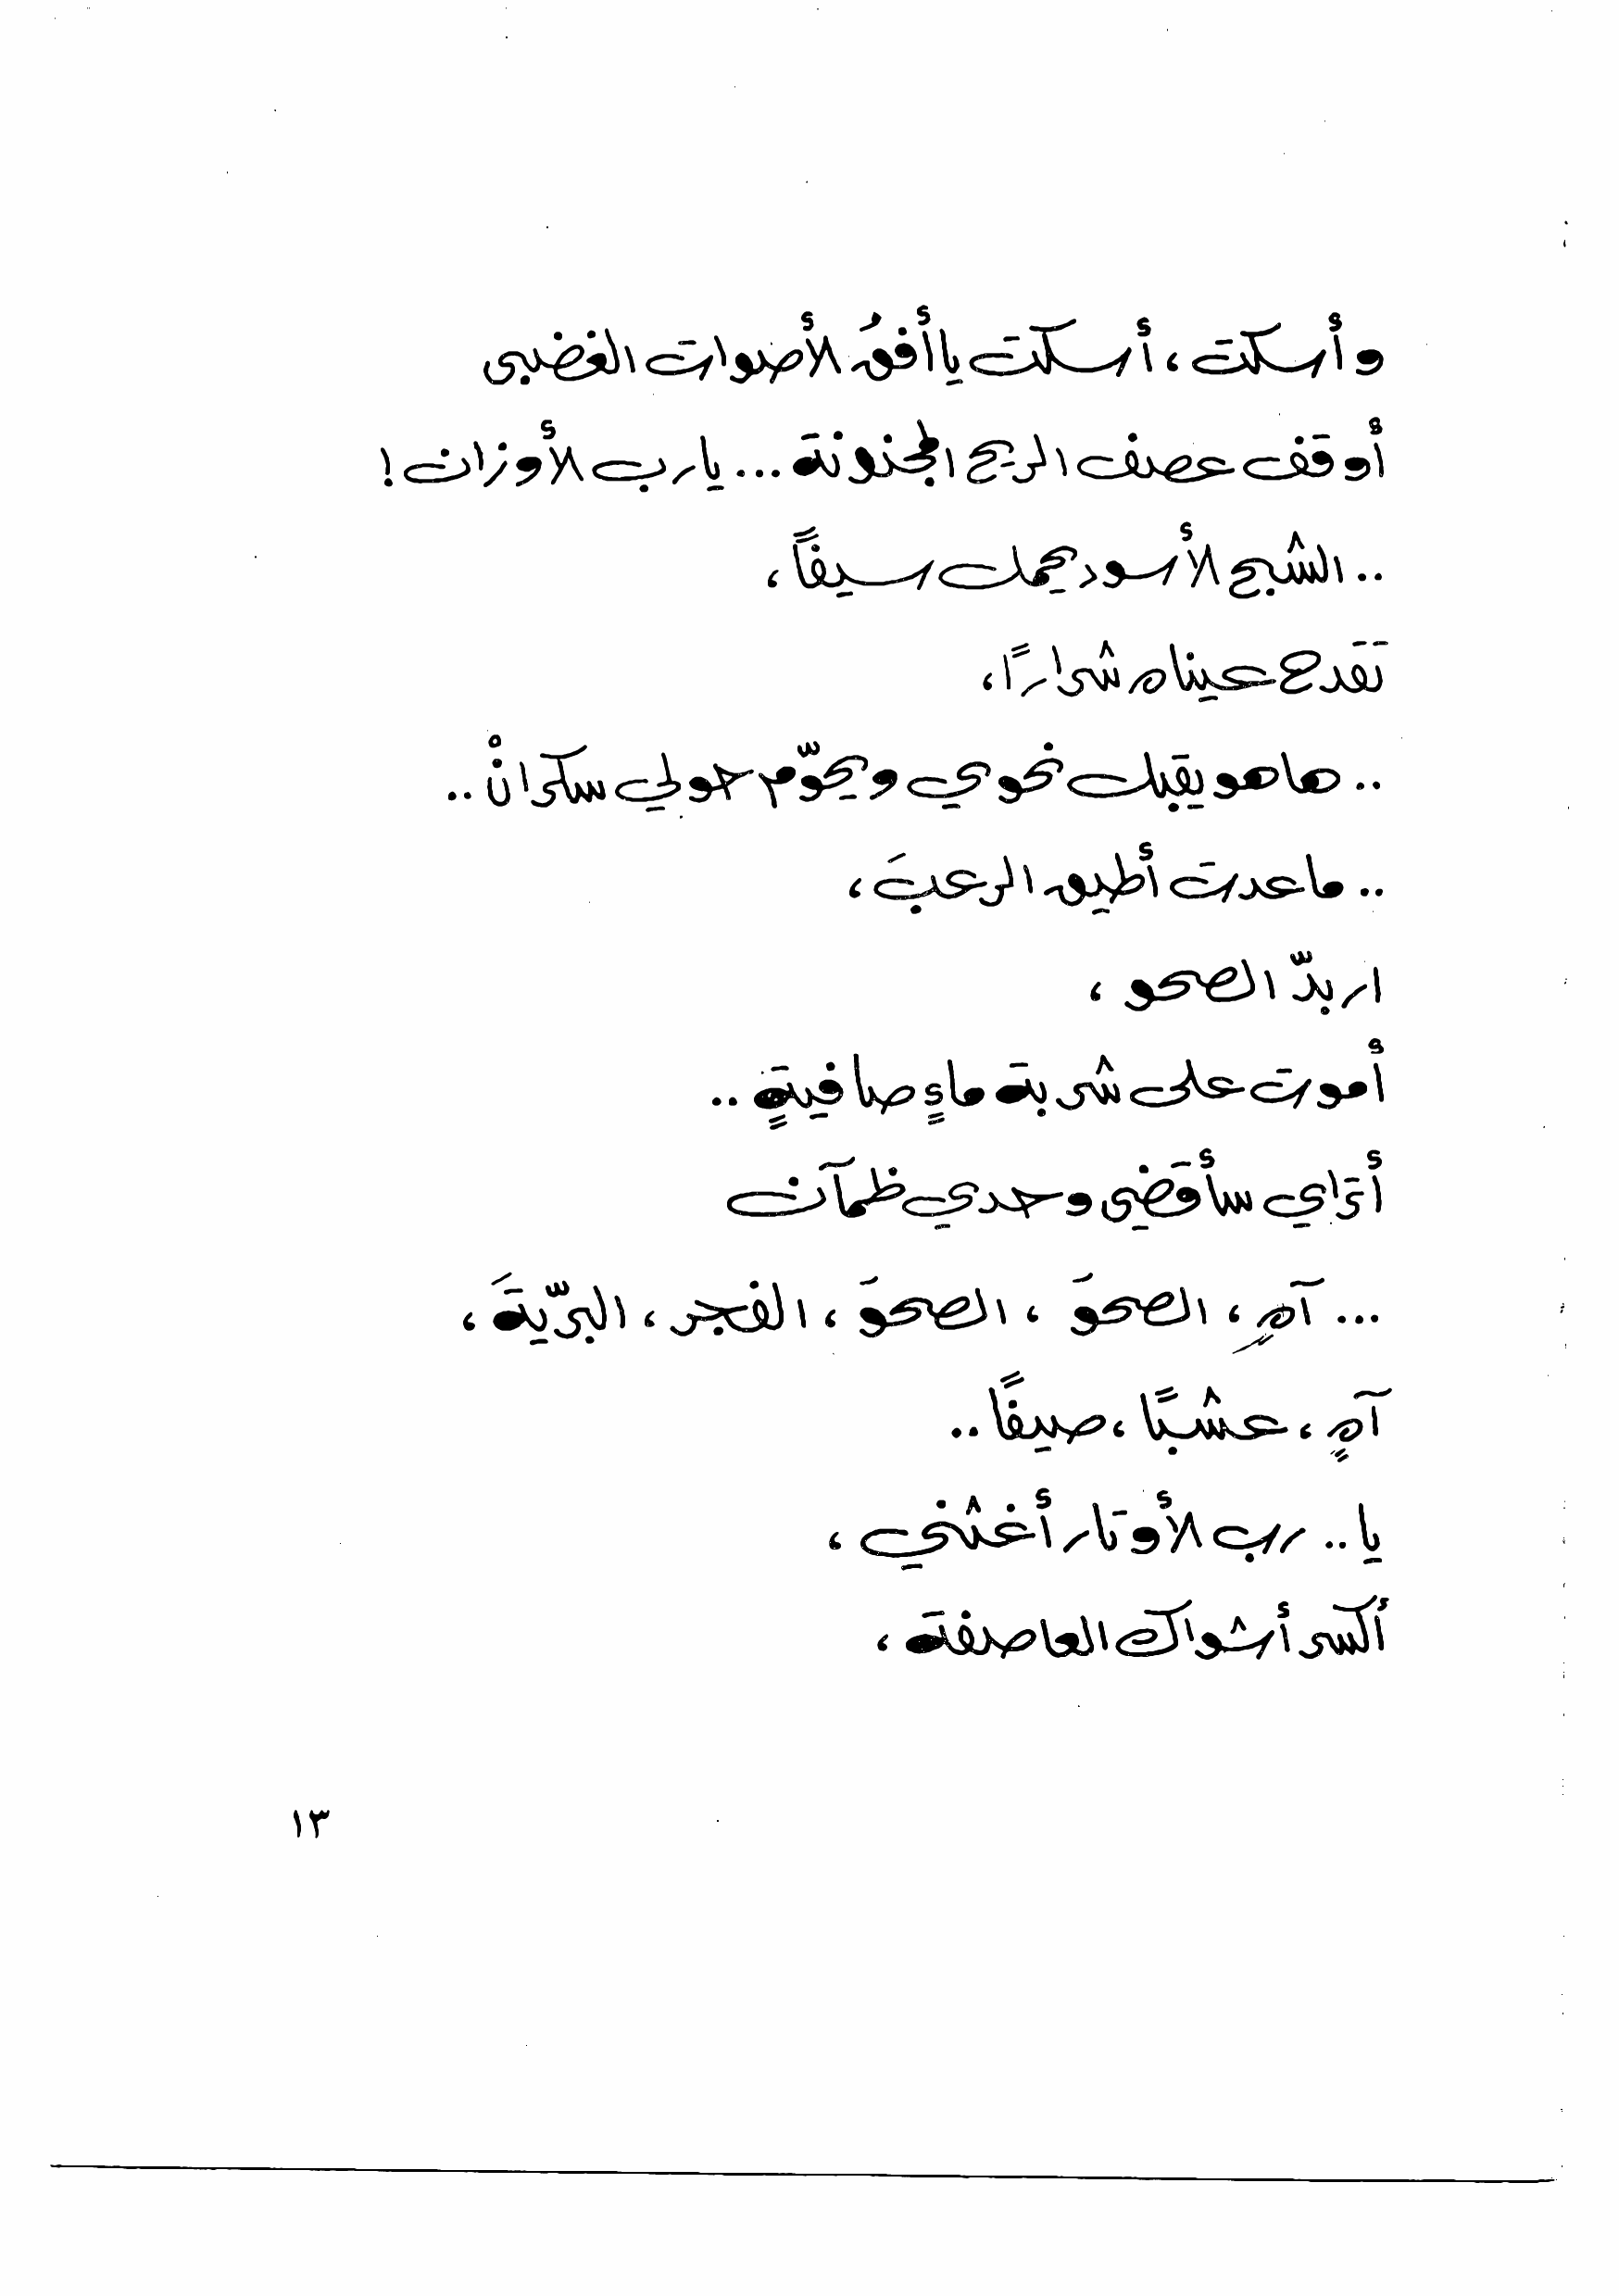 وأسكت، أسكت ياأفقُ الأصوات الغضبى
أوقف عصف الريح المجنونة... يارب الأوزان!
.. الشبح الأسود يحمل سيفًا،
تقدح عيناه شرارًا،
.. هاهو يقبل نحوي ويحوّم حولي سكرانْ ..
.. ماعدت أطيق الرعبَ،
اربدّ الصحو،
أموت على شربة ماءٍ صافيةٍ ..
أتراي سأقَضي وحدي ظمآن
... آهِ، الصحوَ، الصحوَ، الفجر، البريّةَ،
آهٍ، عشبًا، صيفًا ..
يا.. رب الأوتار أغثني،
أكسر أشواك العاصفة،
١٣